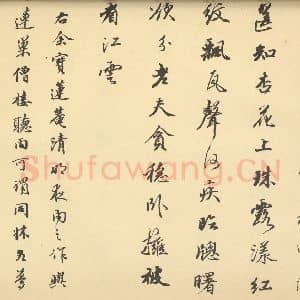 遙知杏花上珠露漾紅
紋飄瓦聲何疾臨牕曙
欲分老夫貪穩卧擁被
看江雲
右余寶蓮菴清明夜雨之作與
連巢僧樓聽雨可謂同牀各夢
Shufawang.CN